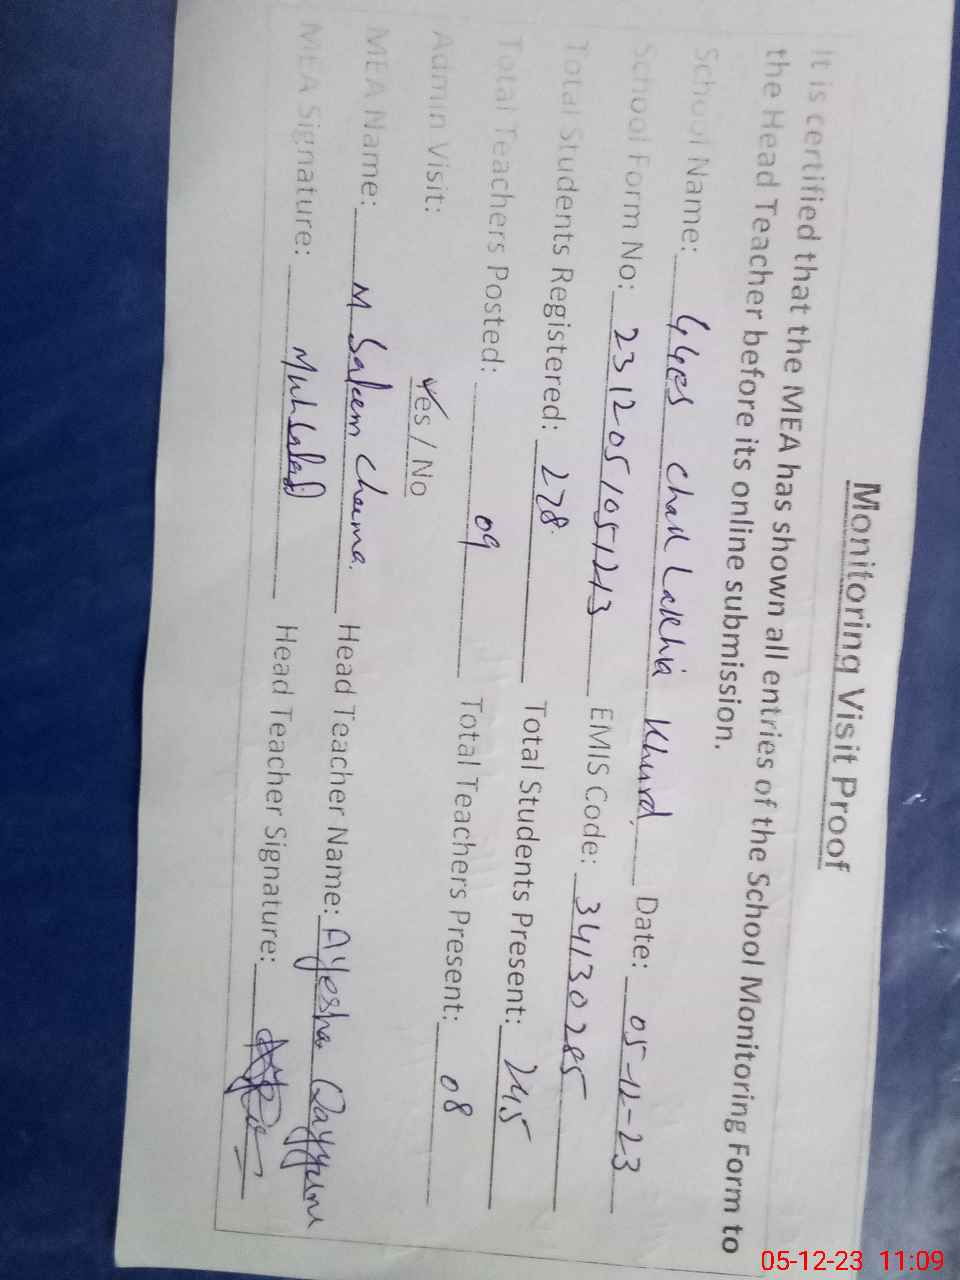 Monitoring Visit Proof
It is certified that the MEA has shown all entries of the School Monitoring Form to
the Head Teacher before its online submission.
School Name: GGES Chak Lakhia Khurd. Date: 05-12-23
School Form No: 2312051051213 EMIS Code: 34130285
Total Students Registered: 278 Total Students Present: 245
Total Teachers Posted: 09 Total Teachers Present: 08
Admin Visit: Yes / No
MEA Name: M Saleem Cheema. Head Teacher Name: Ayesha Qayyum
MEA Signature: Head Teacher Signature:
05-12-23 11:09